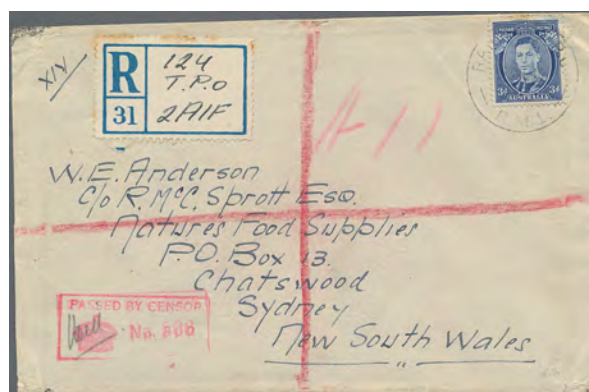 XIV
R
31
124
T.P.O
2AIF
3d
3d
AUSTRALIA
A 11
W.E. Anderson
C/o R. McC. Sprott Esq.
Natures Food Supplies
P.O. Box 13.
Chatswood
Sydney
New South Wales
PASSED BY CENSOR
No.